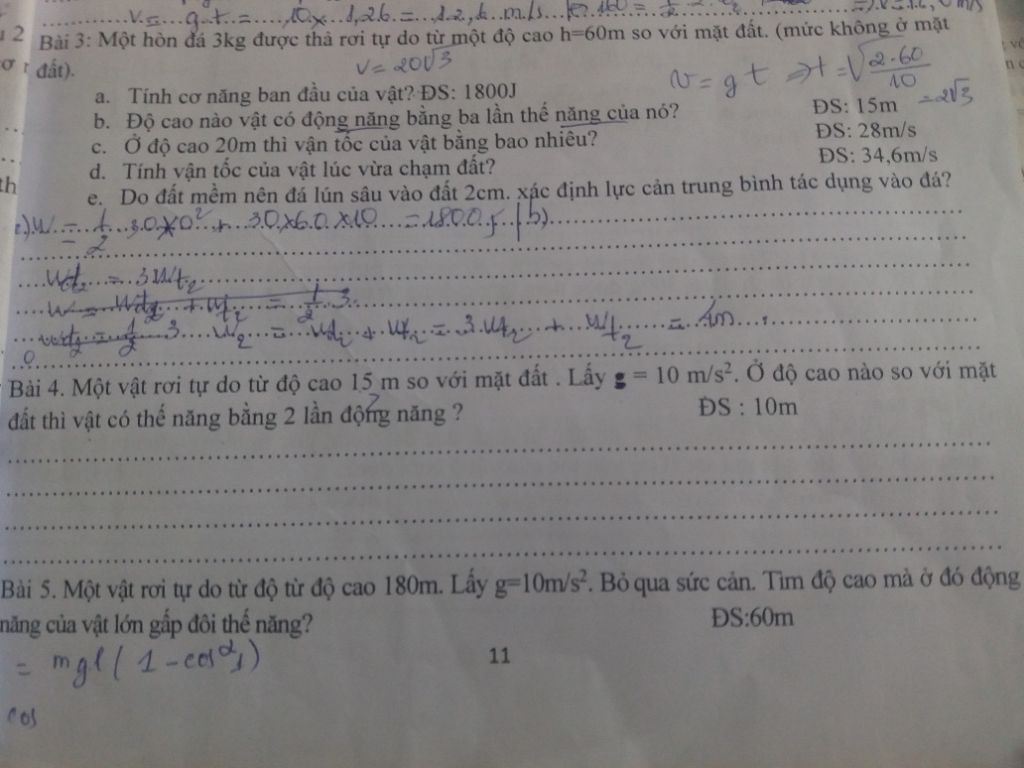 V = g t = 10 x 1,26 = 12,6 m/s
Bài 3: Một hòn đá 3kg được thả rơi tự do từ một độ cao h=60m so với mặt đất. (mức không ở mặt
đất).
V = 20√3
v = g t => t = √(2.60/10) = 2√3
a. Tính cơ năng ban đầu của vật? ĐS: 1800J
b. Độ cao nào vật có động năng bằng ba lần thế năng của nó? ĐS: 15m
c. Ở độ cao 20m thì vận tốc của vật bằng bao nhiêu? ĐS: 28m/s
d. Tính vận tốc của vật lúc vừa chạm đất? ĐS: 34,6m/s
e. Do đất mềm nên đá lún sâu vào đất 2cm. xác định lực cản trung bình tác dụng vào đá?
W = 1/2 . 3,0 x 0² + 3.0 x 6.0 x 10 = 1800 J b)
Wđ₂ = 3Wt₂
W₂ = Wđ₂ + Wt₂ = 3.Wt₂ + Wt₂ =
Bài 4. Một vật rơi tự do từ độ cao 15 m so với mặt đất . Lấy g = 10 m/s². Ở độ cao nào so với mặt
đất thì vật có thế năng bằng 2 lần động năng ? ĐS : 10m
Bài 5. Một vật rơi tự do từ độ từ độ cao 180m. Lấy g=10m/s². Bỏ qua sức cản. Tìm độ cao mà ở đó động
năng của vật lớn gấp đôi thế năng? ĐS:60m
= mgl ( 1 - cosα₁)
11
cos